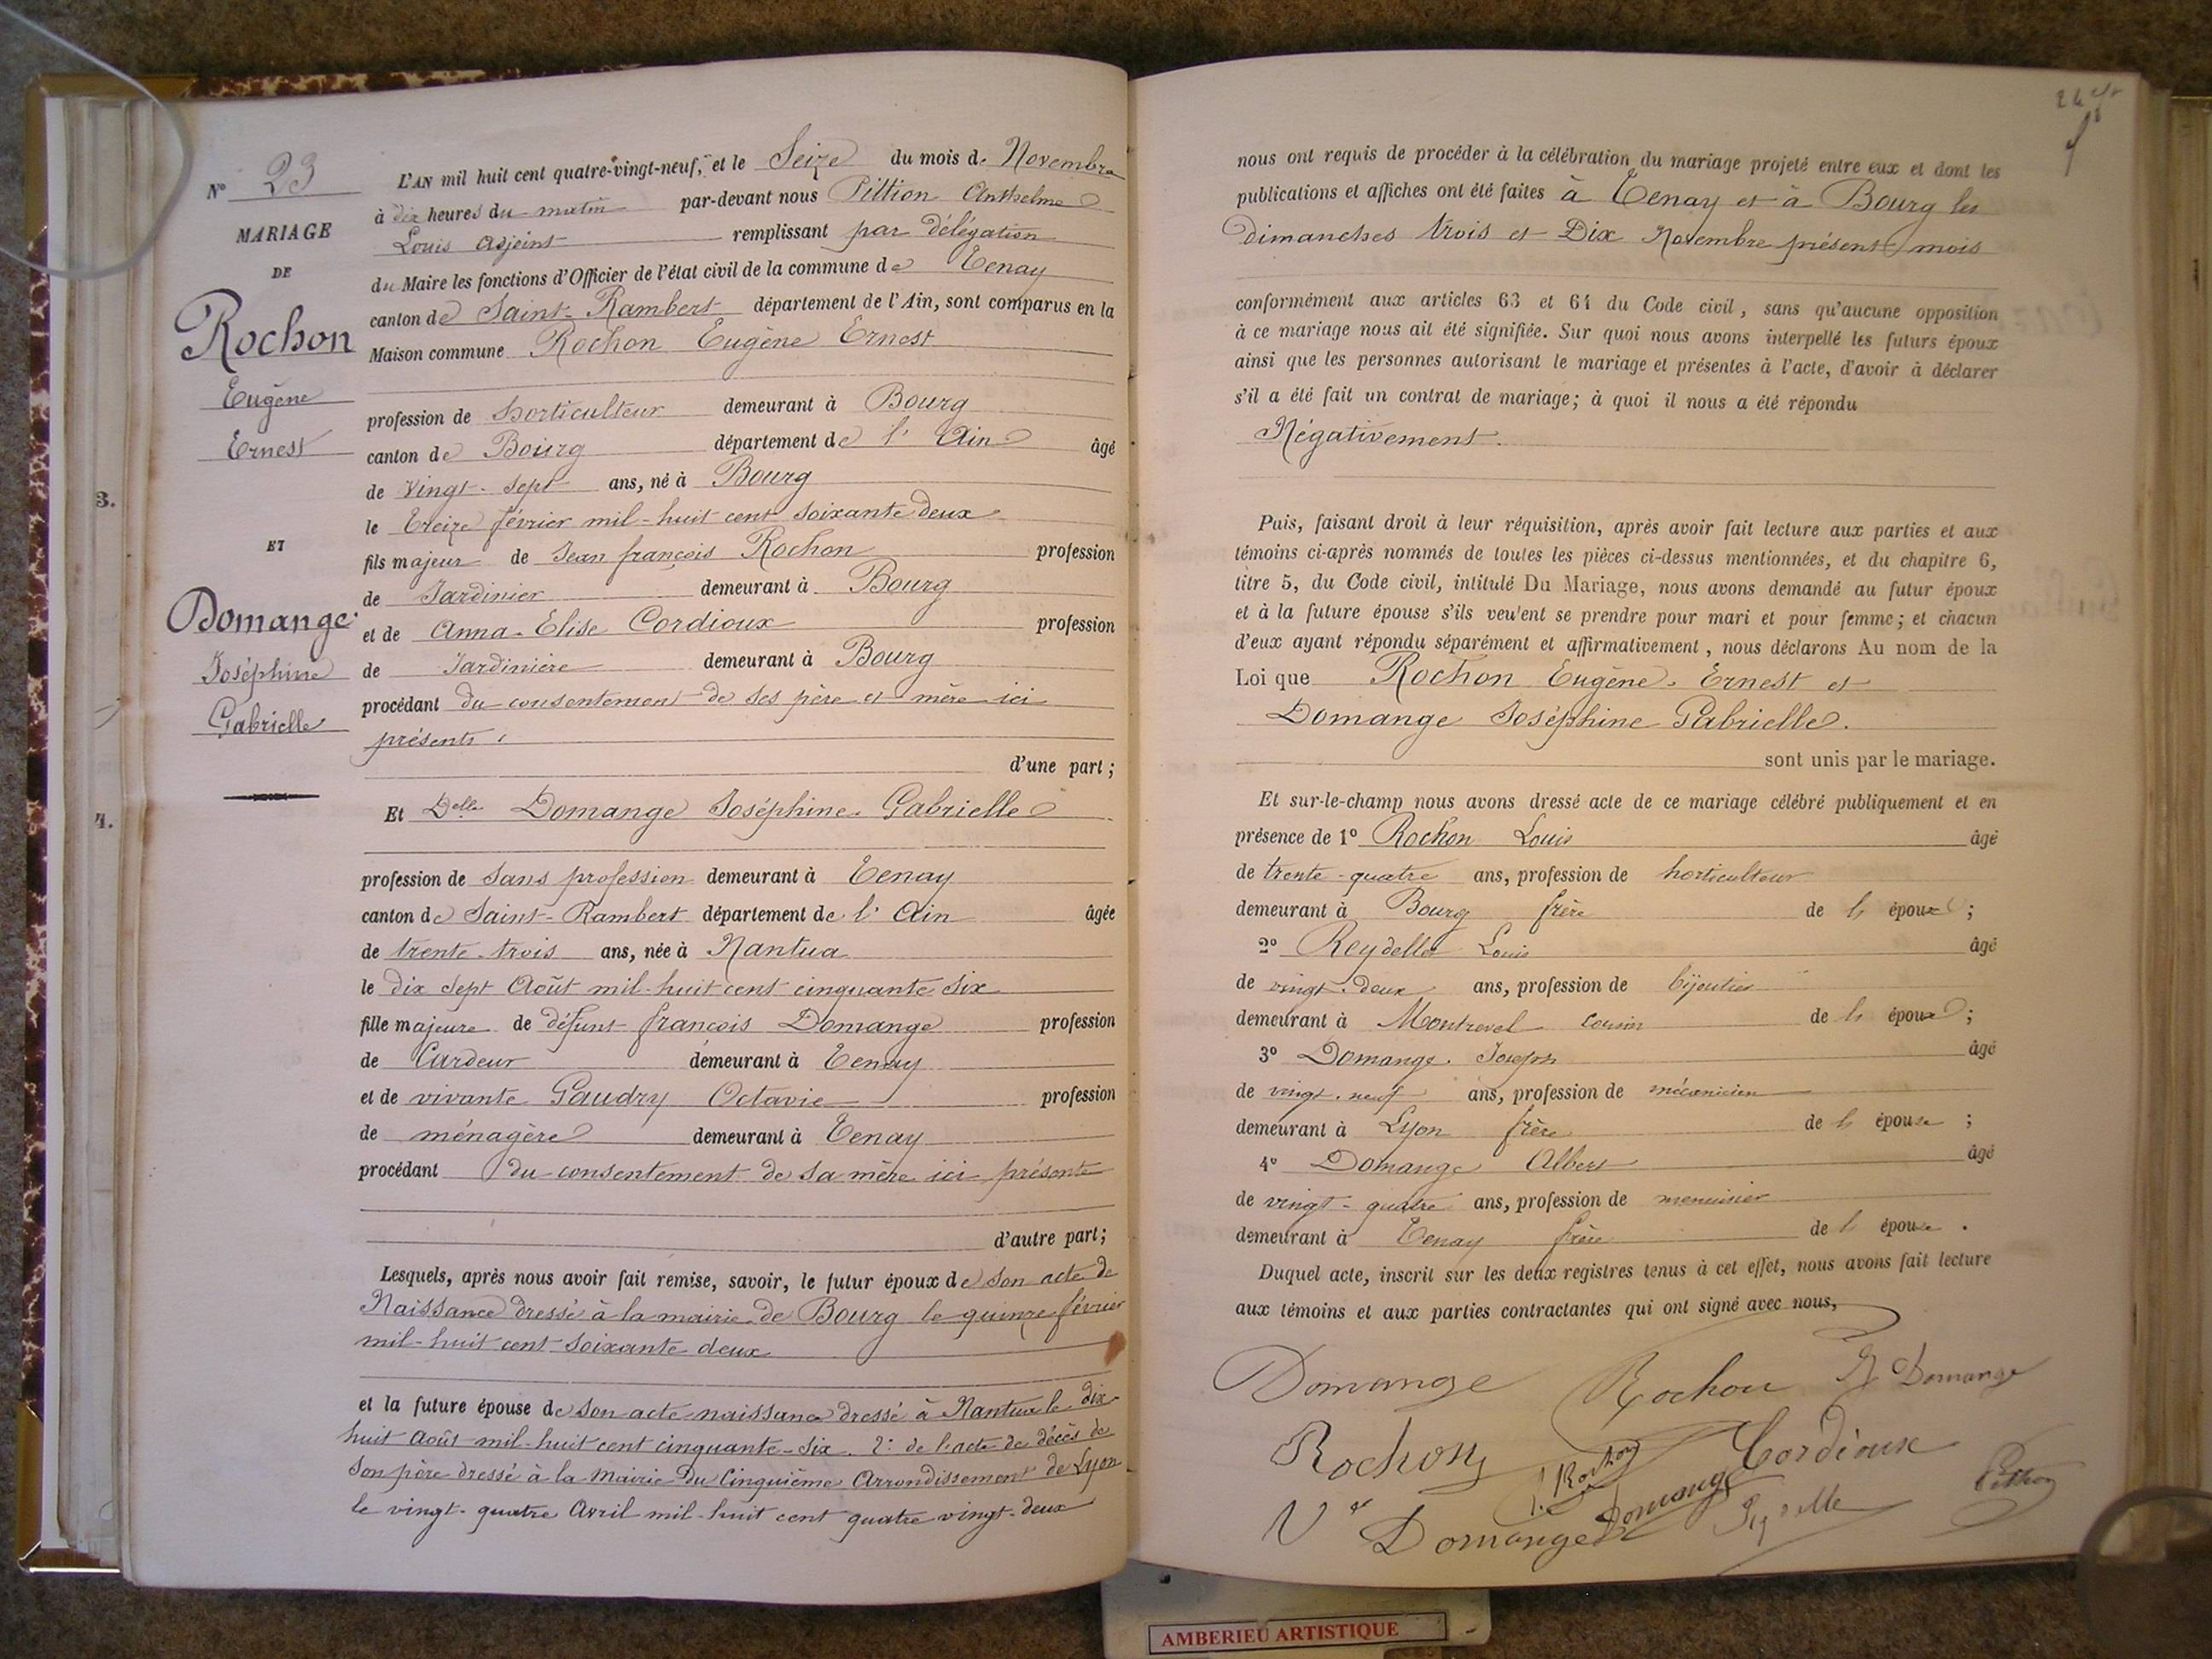 N° 23
MARIAGE
DE
Rochon
Eugène
Ernest
ET
Domange
Joséphine
Gabrielle
3.
4.
L'AN mil huit cent quatre-vingt-neuf, et le Seize du mois de Novembre
à dix heures du matin par-devant nous Pittion Anthelme
Louis adjoint remplissant par délégation
du Maire les fonctions d'Officier de l'état civil de la commune de Tenay
canton de Saint-Rambert département de l'Ain, sont comparus en la
Maison commune Rochon Eugène Ernest
profession de horticulteur demeurant à Bourg
canton de Bourg département de l'Ain âgé
de vingt-sept ans, né à Bourg
le treize février mil-huit cent soixante deux
fils majeur de Jean françois Rochon profession
de Jardinier demeurant à Bourg
et de Anna-Elise Cordioux profession
de Jardinière demeurant à Bourg
procédant du consentement de ses père et mère ici
présents.
d'une part;
Et Delle Domange Joséphine-Gabrielle
profession de sans profession demeurant à Tenay
canton de Saint-Rambert département de l'Ain âgée
de trente-trois ans, née à Nantua
le dix sept Août mil-huit cent cinquante six
fille majeure de défunt françois Domange profession
de Cardeur demeurant à Tenay
et de vivante Gaudry Octavie profession
de ménagère demeurant à Tenay
procédant du consentement de sa mère ici présente
d'autre part;
Lesquels, après nous avoir fait remise, savoir, le futur époux de son acte de
Naissance dressé à la mairie de Bourg le quinze février
mil-huit cent soixante deux
et la future épouse de son acte naissance dressé à Nantua le dix
huit août mil-huit cent cinquante-six. 2° de l'acte de décès de
son père dressé à la Mairie du Cinquième Arrondissement de Lyon
le vingt-quatre Avril mil-huit cent quatre vingt-deux
nous ont requis de procéder à la célébration du mariage projeté entre eux et dont les
publications et affiches ont été faites à Tenay et à Bourg les
dimanches trois et Dix Novembre présent mois
conformément aux articles 63 et 64 du Code civil, sans qu'aucune opposition
à ce mariage nous ait été signifiée. Sur quoi nous avons interpellé les futurs époux
ainsi que les personnes autorisant le mariage et présentes à l'acte, d'avoir à déclarer
s'il a été fait un contrat de mariage; à quoi il nous a été répondu
Négativement.
Puis, faisant droit à leur réquisition, après avoir fait lecture aux parties et aux
témoins ci-après nommés de toutes les pièces ci-dessus mentionnées, et du chapitre 6,
titre 5, du Code civil, intitulé Du Mariage, nous avons demandé au futur époux
et à la future épouse s'ils veulent se prendre pour mari et pour femme; et chacun
d'eux ayant répondu séparément et affirmativement, nous déclarons Au nom de la
Loi que Rochon Eugène-Ernest et
Domange Joséphine Gabrielle.
sont unis par le mariage.
Et sur-le-champ nous avons dressé acte de ce mariage célébré publiquement et en
présence de 1° Rochon Louis âgé
de trente-quatre ans, profession de horticulteur
demeurant à Bourg frère de l'époux;
2° Reydellet Louis âgé
de vingt-deux ans, profession de bijoutier
demeurant à Montrevel cousin de l'époux;
3° Domange Joseph âgé
de vingt-neuf ans, profession de mécanicien
demeurant à Lyon frère de l'épouse;
4° Domange Albert âgé
de vingt-quatre ans, profession de menuisier
demeurant à Tenay frère de l'épouse.
Duquel acte, inscrit sur les deux registres tenus à cet effet, nous avons fait lecture
aux témoins et aux parties contractantes qui ont signé avec nous,
Domange Rochon Domange
Rochon Rochon Cordioux
Ve Domange Domange Pittion
AMBERIEU ARTISTIQUE